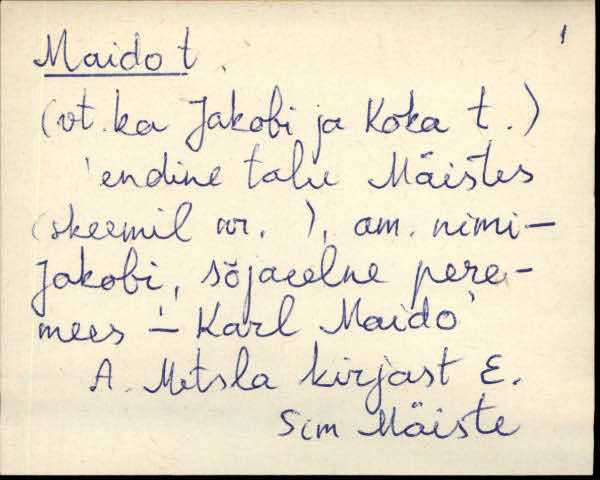 1
Maido t.
(vt. ka Jakobi ja Koka t.)
'endine talu Mäistes
(skeemil nr. ), am. nimi-
Jakobi, sõjaeelne pere-
mees - Karl Maido'
A. Metsla kirjast E.
Sim Mäiste